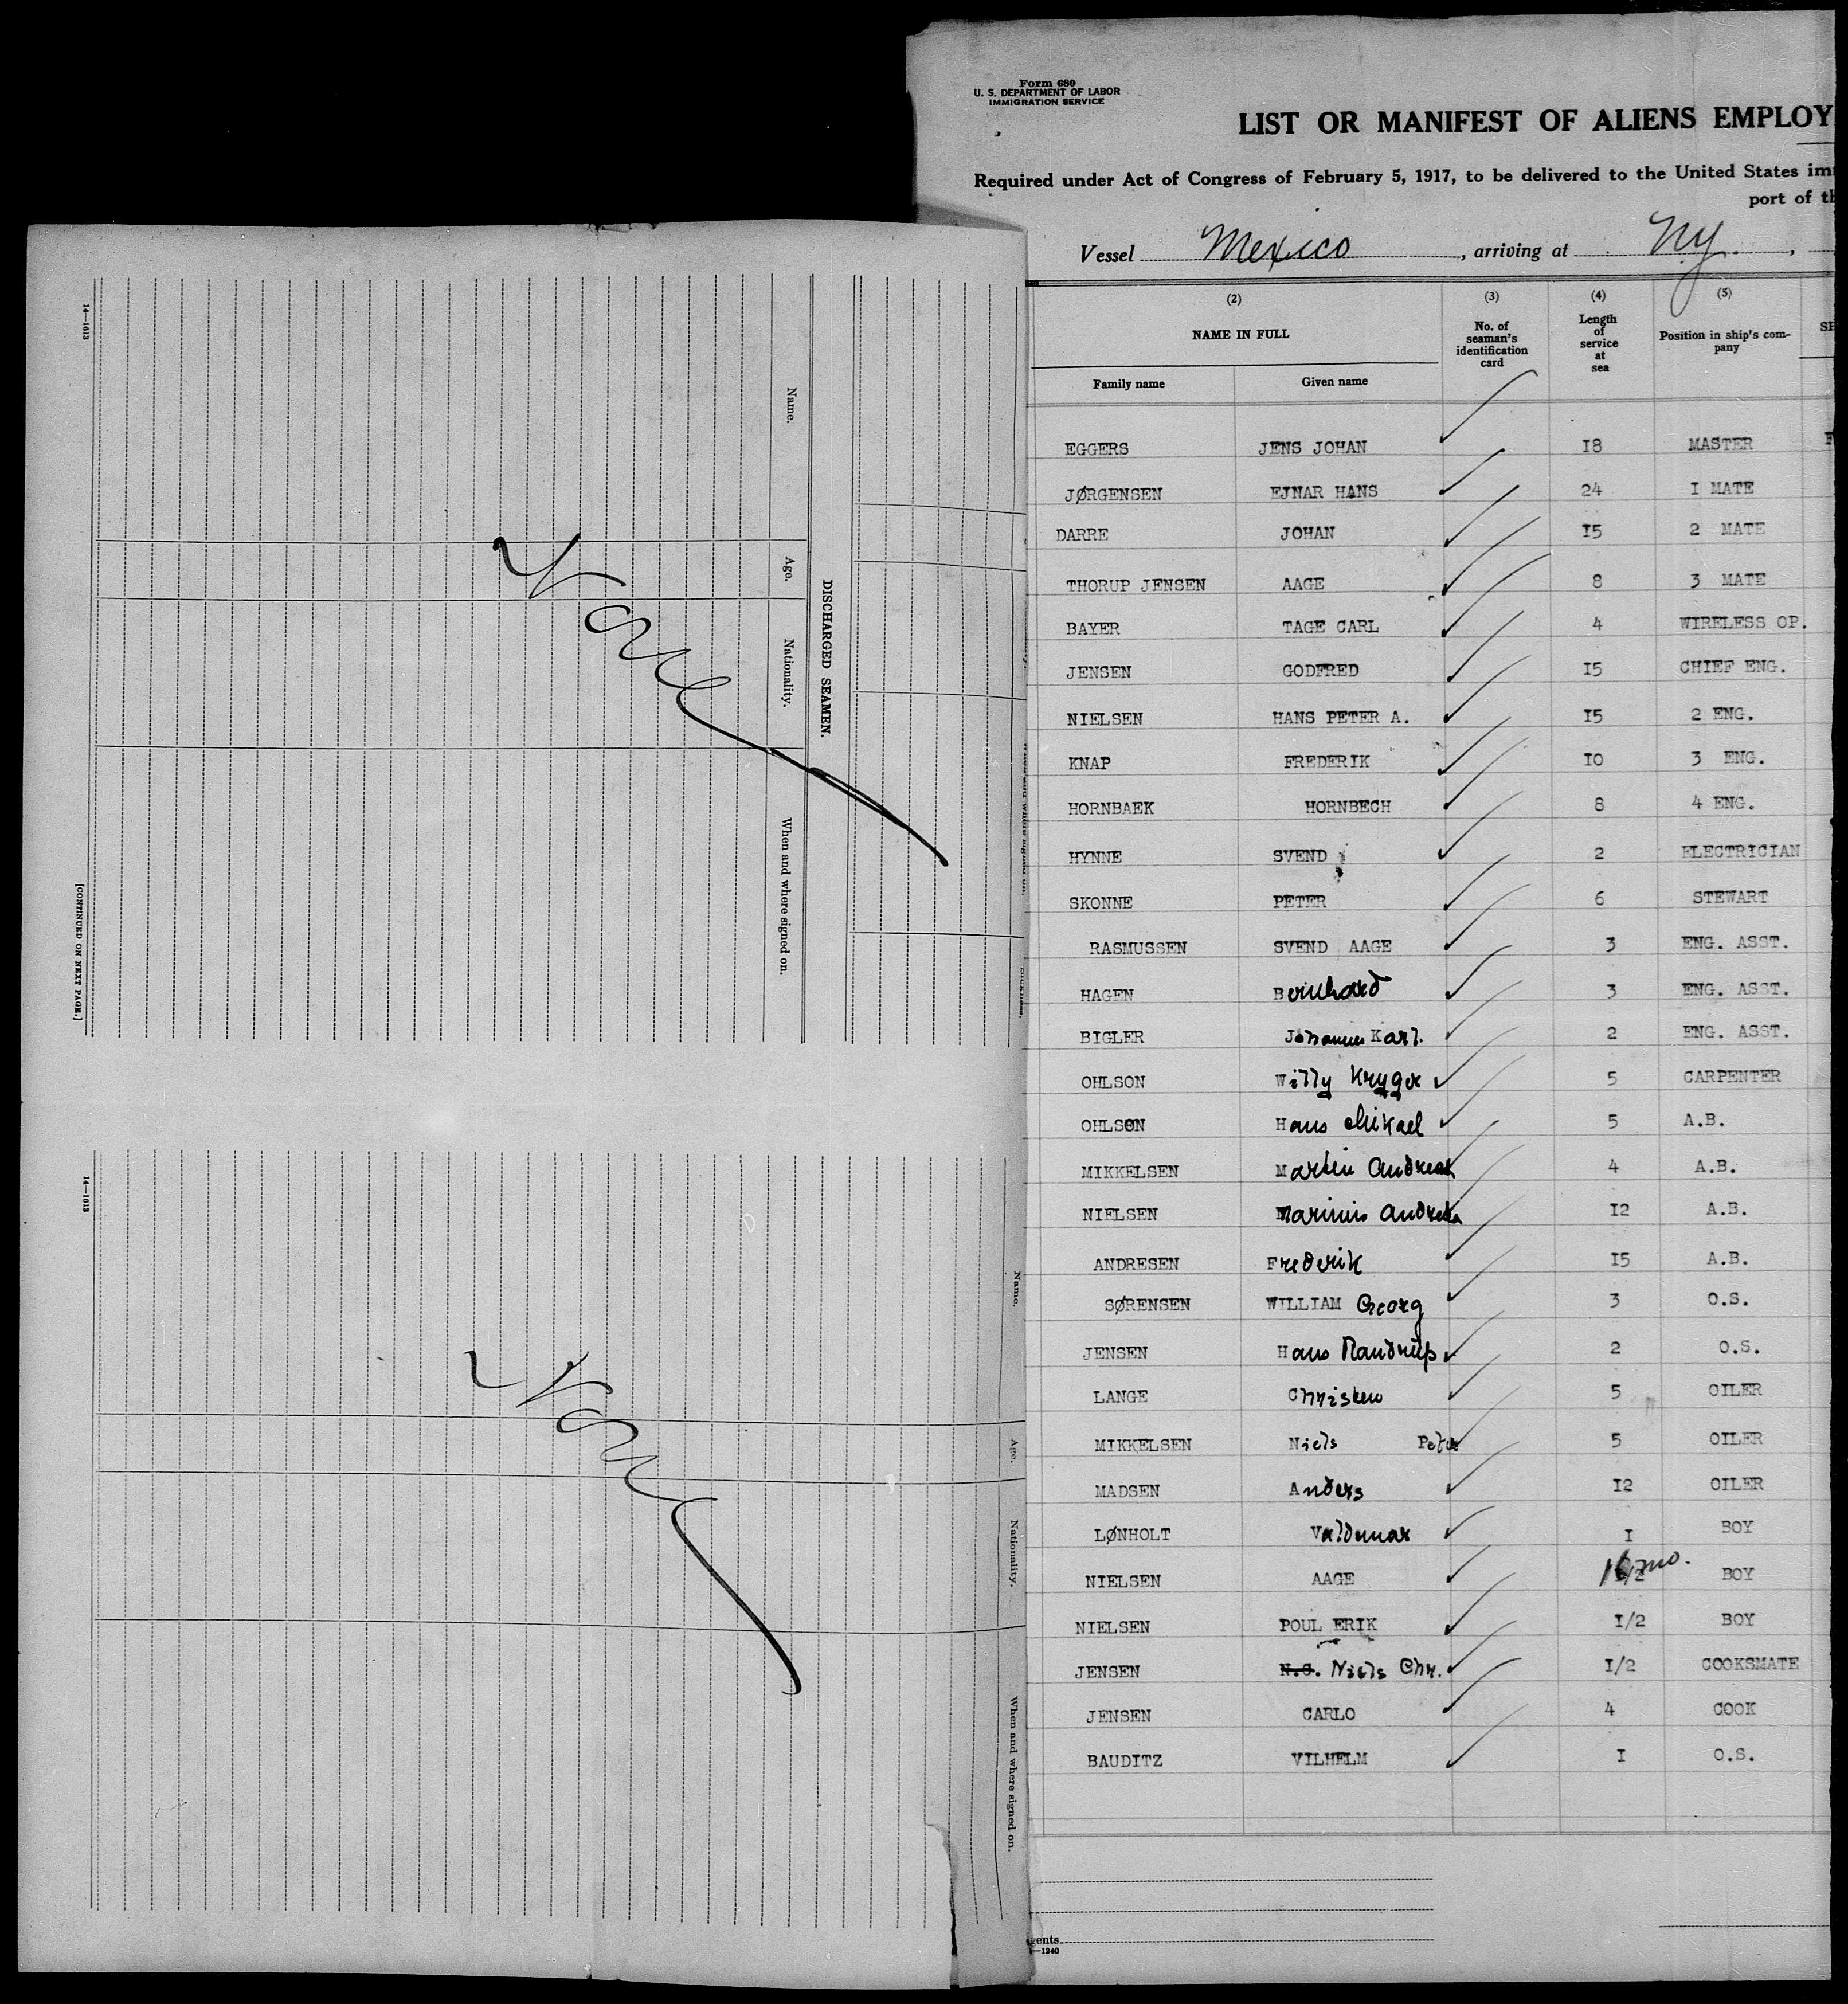 14—1613
Name.
Age.
Nationality.
When and where signed on.
DISCHARGED SEAMEN.
[CONTINUED ON NEXT PAGE.]
14—1613
Name.
Age.
Nationality.
When and where signed on.
Form 680
U. S. DEPARTMENT OF LABOR
IMMIGRATION SERVICE
LIST OR MANIFEST OF ALIENS EMPLOY
Required under Act of Congress of February 5, 1917, to be delivered to the United States im
port of th
Vessel Mexico, arriving at NY.,
(2) (3) (4) (5)
NAME IN FULL No. of seaman's identification card Length of service at sea Position in ship's company
Family name Given name
EGGERS JENS JOHAN 18 MASTER
JØRGENSEN EJNAR HANS 24 I MATE
DARRE JOHAN 15 2 MATE
THORUP JENSEN AAGE 8 3 MATE
BAYER TAGE CARL 4 WIRELESS OP.
JENSEN GODFRED 15 CHIEF ENG.
NIELSEN HANS PETER A. 15 2 ENG.
KNAP FREDERIK 10 3 ENG.
HORNBAEK HORNBECH 8 4 ENG.
HYNNE SVEND 2 ELECTRICIAN
SKONNE PETER 6 STEWART
RASMUSSEN SVEND AAGE 3 ENG. ASST.
HAGEN Bernhard 3 ENG. ASST.
BIGLER Johannes Karl. 2 ENG. ASST.
OHLSON Willy Kryger 5 CARPENTER
OHLSON Hans Mikael 5 A.B.
MIKKELSEN Martin Andreas 4 A.B.
NIELSEN Marinus Andreas 12 A.B.
ANDRESEN Frederik 15 A.B.
SØRENSEN WILLIAM Georg 3 O.S.
JENSEN Hans Randrup 2 O.S.
LANGE Christen 5 OILER
MIKKELSEN Niels Peter 5 OILER
MADSEN Anders 12 OILER
LØNHOLT Valdemar I BOY
NIELSEN AAGE mo. BOY
NIELSEN POUL ERIK I/2 BOY
JENSEN Niels Chr. I/2 COOKSMATE
JENSEN CARLO 4 COOK
BAUDITZ VILHELM I O.S.
gents
—1240